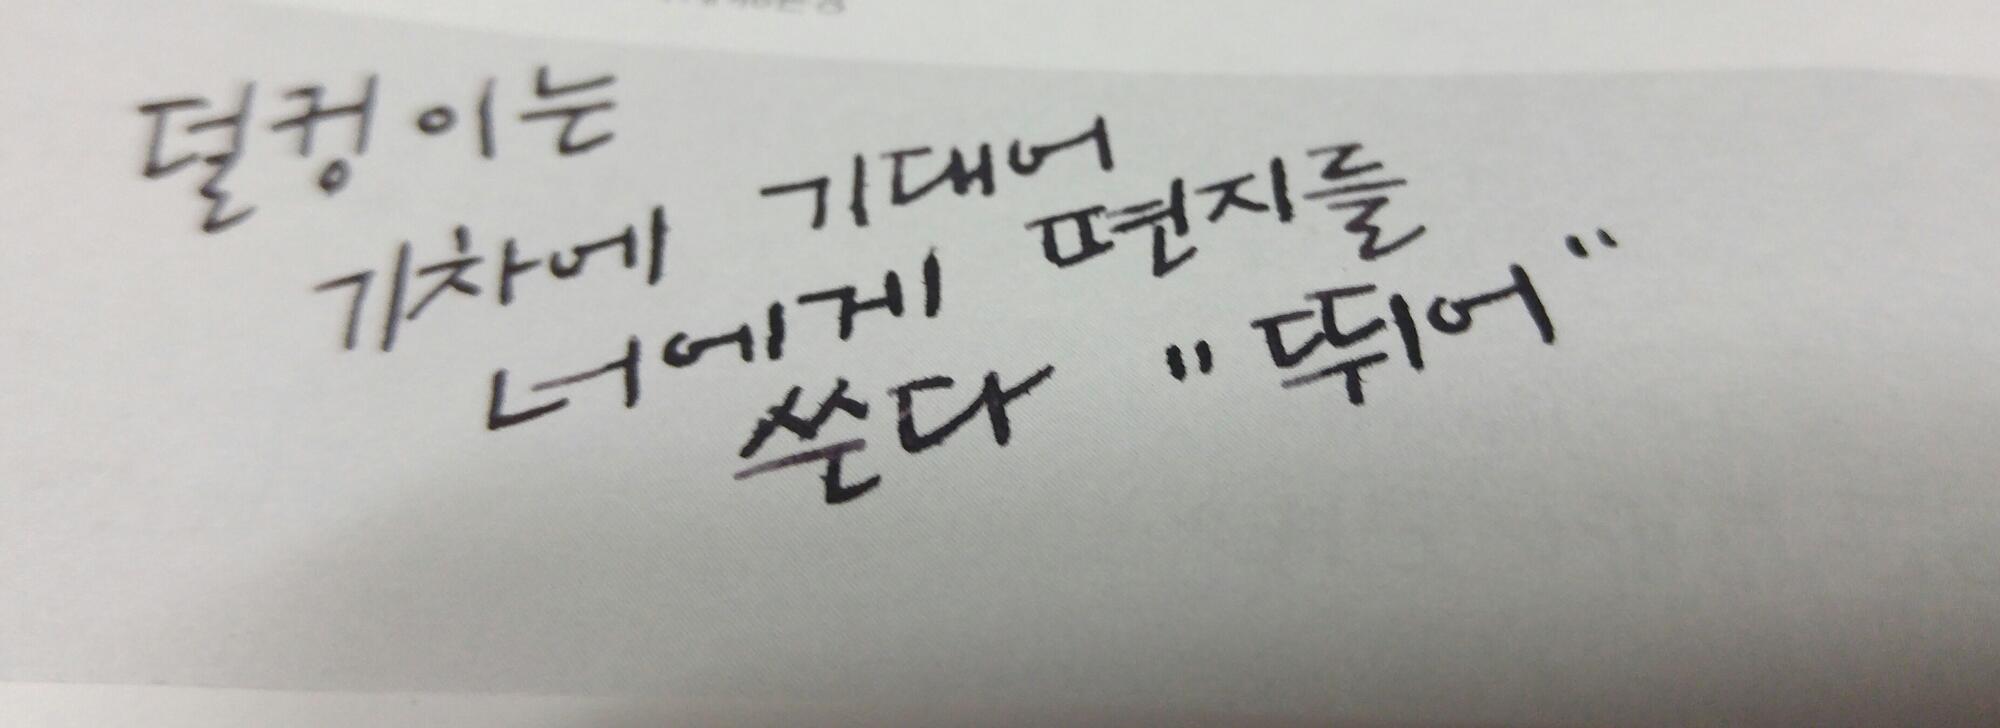 덜컹이는
기차에 기대어
너에게 편지를
쓴다 "뛰어"